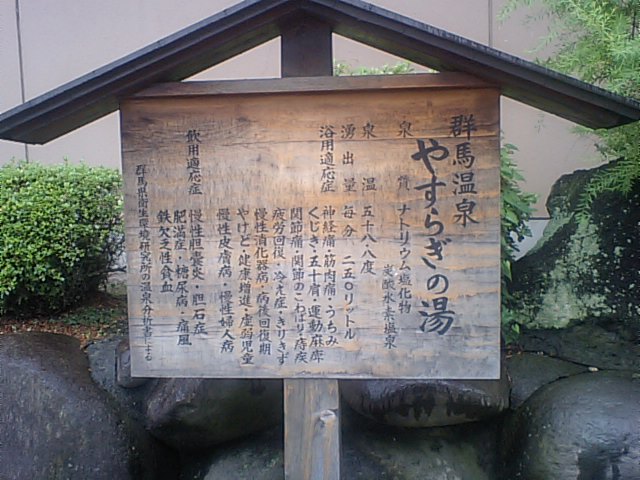 群馬温泉
やすらぎの湯
泉質 ナトリウム塩化物
炭酸水素塩泉
泉温 五十八・八度
湧出量 毎分 二五〇リットル
浴用適応症 神経痛・筋肉痛・うちみ
くじき・五十肩・運動麻痺
関節痛・関節のこわばり・痔疾
疲労回復・冷え症・きりきず
慢性消化器病・病後回復期
やけど・健康増進・虚弱児童
慢性皮膚病・慢性婦人病
飲用適応症 慢性胆嚢炎・胆石症
肥満症・糖尿病・痛風
鉄欠乏性貧血
群馬県衛生環境研究所の温泉分析書による